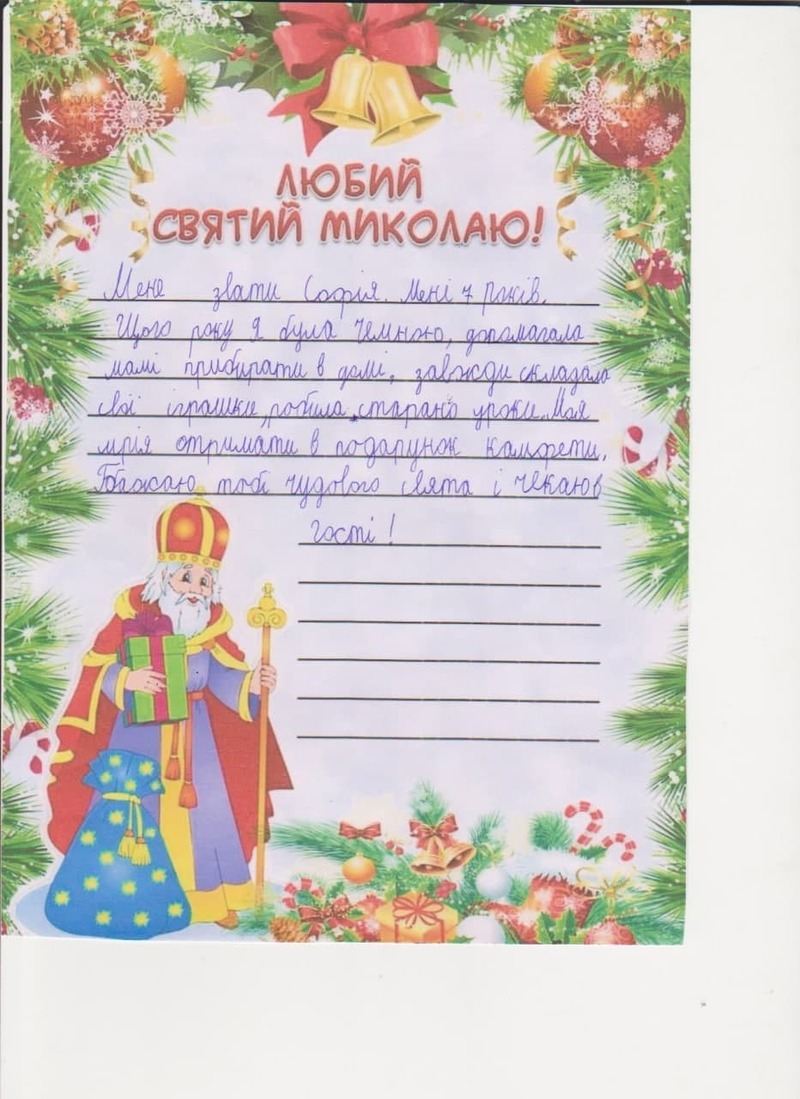 ЛЮБИЙ
СВЯТИЙ МИКОЛАЮ!
Мене звати Софія. Мені 7 років.
Цього року я була чемною, допомагала
мамі прибирати в домі, завжди складала
свої іграшки, робила старано уроки. Моя
мрія отримати в подарунок камфети.
Бажаю тобі чудового свята і чекаю в
гості!